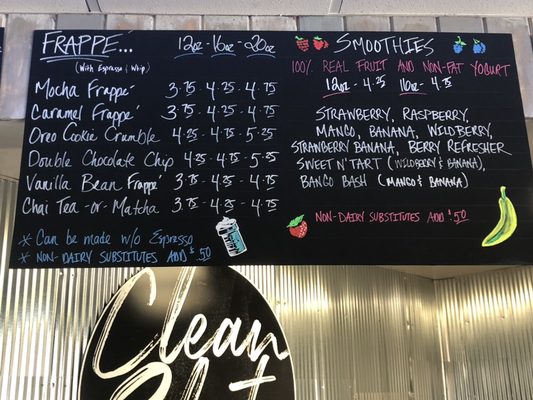 FRAPPE...
12oz - 16oz - 20oz
(With Espresso & Whip)
Mocha Frappé 3.75 - 4.25 - 4.75
Caramel Frappé 3.75 - 4.25 - 4.75
Oreo Cookie Crumble 4.25 - 4.75 - 5.25
Double Chocolate Chip 4.25 - 4.75 - 5.25
Vanilla Bean Frappé 3.75 - 4.25 - 4.75
Chai Tea -or- Matcha 3.75 - 4.25 - 4.75
* Can be made w/o Espresso
* NON-DAIRY SUBSTITUTES ADD $.50
SMOOTHIES
100% REAL FRUIT AND NON-FAT YOGURT
12oz - 4.25 16oz - 4.75
STRAWBERRY, RASPBERRY,
MANGO, BANANA, WILDBERRY,
STRAWBERRY BANANA, BERRY REFRESHER
SWEET N' TART (WILDBERRY & BANANA),
BANGO BASH (MANGO & BANANA)
NON-DAIRY SUBSTITUTES ADD $.50
Clean